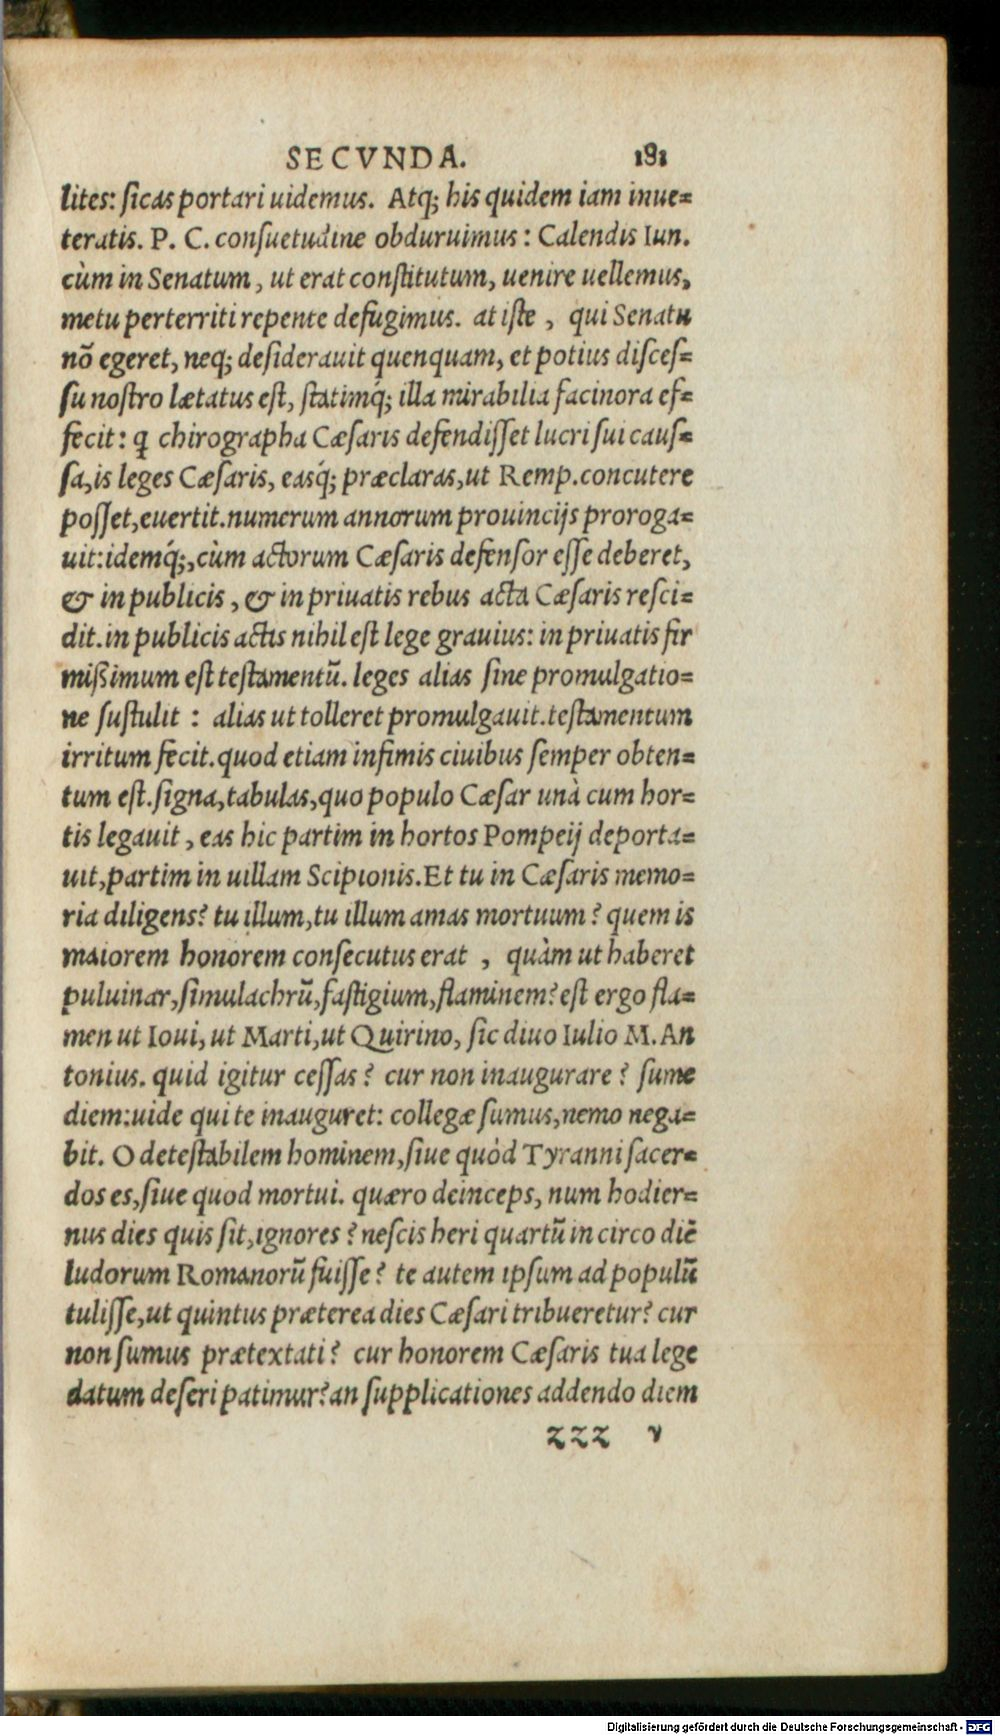 SECVNDA. 181
lites: ſicas portari uidemus. Atq; his quidem iam inue=
teratis. P. C. conſuetudine obduruimus: Calendis Iun.
cùm in Senatum, ut erat conſtitutum, uenire uellemus,
metu perterriti repente defugimus. at iſte, qui Senatu
nō egeret, neq; deſiderauit quenquam, et potius diſceſ=
ſu noſtro lætatus eſt, ſtatimq́; illa mirabilia facinora ef=
fecit: ꝗ chirographa Cæſaris defendiſſet lucri ſui cauſ=
ſa, is leges Cæſaris, easq́; præclaras, ut Remp. concutere
poſſet, euertit. numerum annorum prouincijs proroga=
uit: idemq́;, cùm actorum Cæſaris defenſor eſſe deberet,
& in publicis, & in priuatis rebus acta Cæſaris reſci=
dit. in publicis actis nihil eſt lege grauius: in priuatis fir
mißimum eſt teſtamentū. leges alias ſine promulgatio=
ne ſuſtulit: alias ut tolleret promulgauit. teſtamentum
irritum fecit. quod etiam infimis ciuibus ſemper obten=
tum eſt. ſigna, tabulas, quo populo Cæſar unà cum hor=
tis legauit, eas hic partim in hortos Pompeij deporta=
uit, partim in uillam Scipionis. Et tu in Cæſaris memo=
ria diligens? tu illum, tu illum amas mortuum? quem is
maiorem honorem conſecutus erat, quàm ut haberet
puluinar, ſimulachrū, faſtigium, flaminem? eſt ergo fla=
men ut Ioui, ut Marti, ut Quirino, ſic diuo Iulio M. An
tonius. quid igitur ceſſas? cur non inaugurare? ſume
diem: uide qui te inauguret: collegæ ſumus, nemo nega=
bit. O deteſtabilem hominem, ſiue quòd Tyranni ſacer=
dos es, ſiue quod mortui. quæro deinceps, num hodier=
nus dies quis ſit, ignores? neſcis heri quartū in circo diē
ludorum Romanorū fuiſſe? te autem ipſum ad populū
tuliſſe, ut quintus præterea dies Cæſari tribueretur? cur
non ſumus prætextati? cur honorem Cæſaris tua lege
datum deſeri patimur? an ſupplicationes addendo diem
zzz v
Digitalisierung gefördert durch die Deutsche Forschungsgemeinschaft - DFG